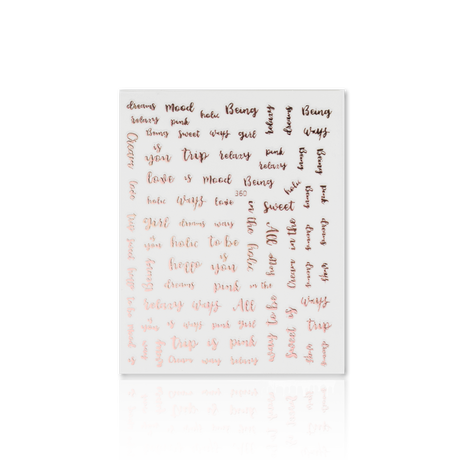 dreams Mood holic Being relaxy dreams Being
relaxy pink
Being Sweet ways girl ways
is
you trip relaxy pink
relaxy
Being Being
love is Mood Being holic
360
holic ways love Sweet
Cream love trip pink
in the holic
All
girl dreams ways
you holic to be
Cream in the
hello is
you
dreams pink in the
relaxy ways All ways
way to be
sweet is
is ways pink girl trip
trip is pink
Cream way relaxy